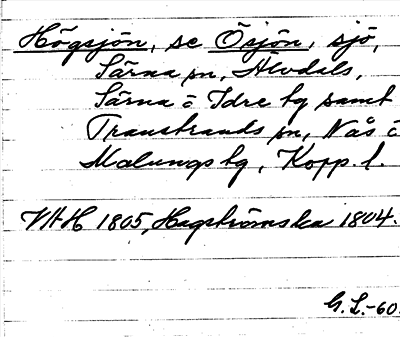 Högsjön, se Ösjön, sjö,
Särna sn, Älvdals,
Särna o Idre tg samt
Transtrands sn, Nås o
Malungs tg, Kopp. l.
1805, Hagströmska 1804.
G. L. -60.